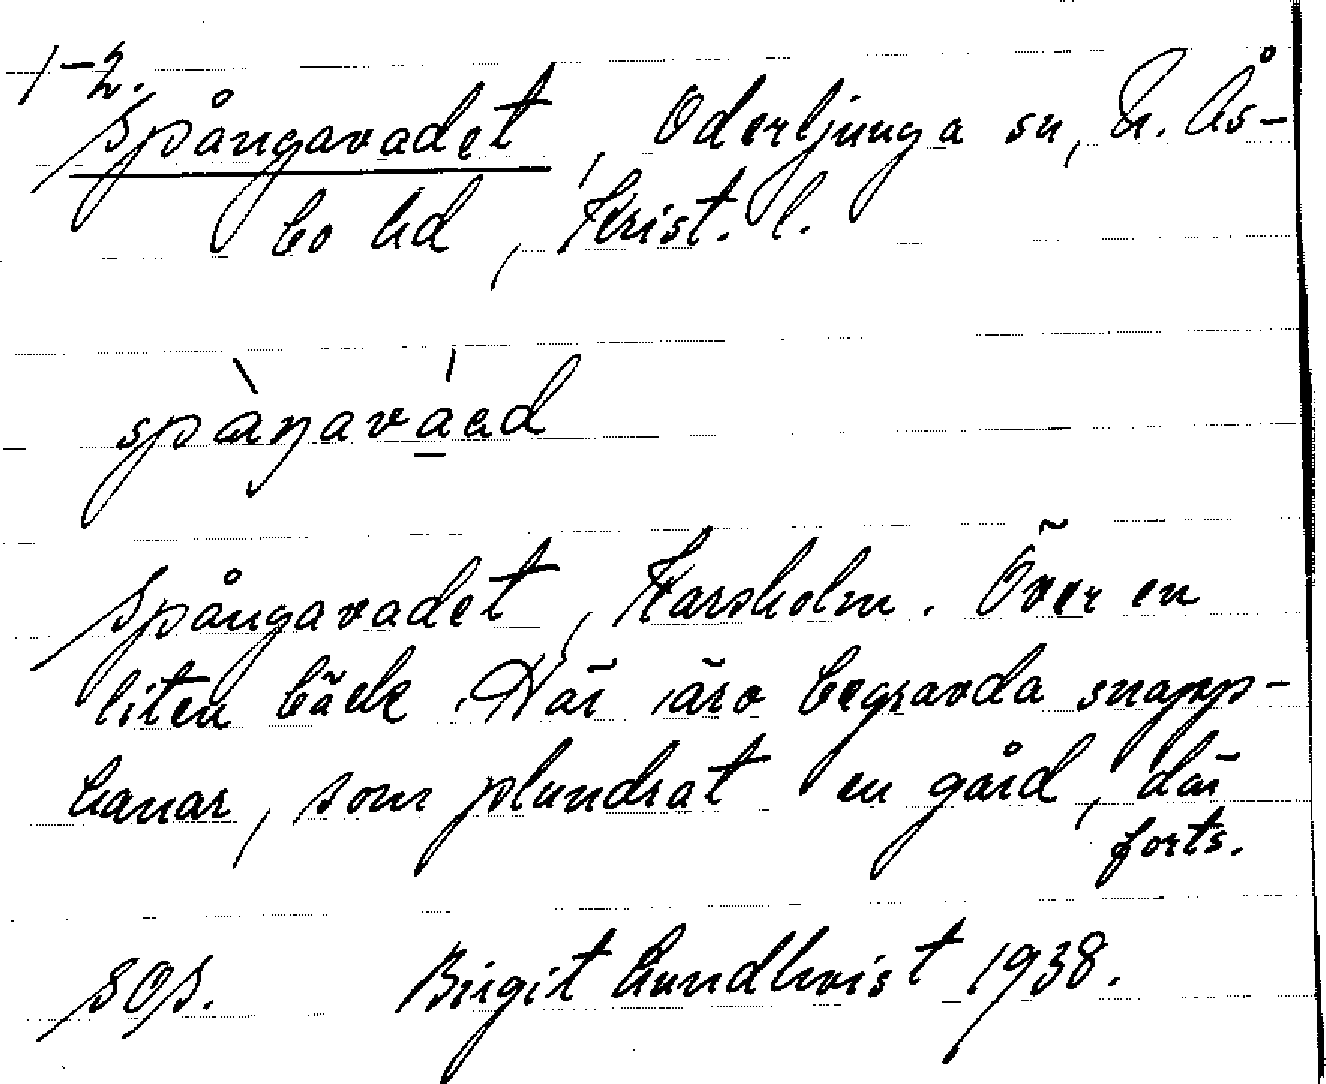 1-2.
Spångavadet, Oderljunga sn, N. Ås-
bo hd, Krist. l.
spàŋaváad
Spångavadet, Karsholm. Över en
liten bäck. Här äro begravda snapp-
hanar, som plundrat en gård, där
forts.
SOS. Birgit Lundkvist 1938.